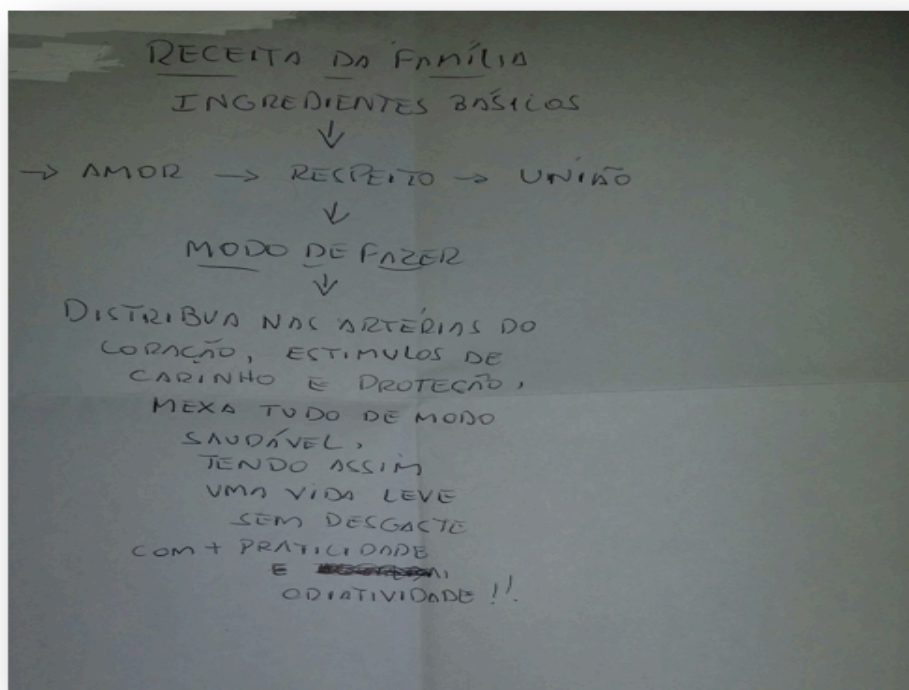 RECEITA DA FAMÍLIA
INGREDIENTES BÁSICOS
↓
→ AMOR → RESPEITO → UNIÃO
↓
MODO DE FAZER
↓
DISTRIBUA NAS ARTÉRIAS DO
CORAÇÃO, ESTIMULOS DE
CARINHO E PROTEÇÃO,
MEXA TUDO DE MODO
SAUDÁVEL,
TENDO ASSIM
UMA VIDA LEVE
SEM DESGASTE
COM + PRATICIDADE
E